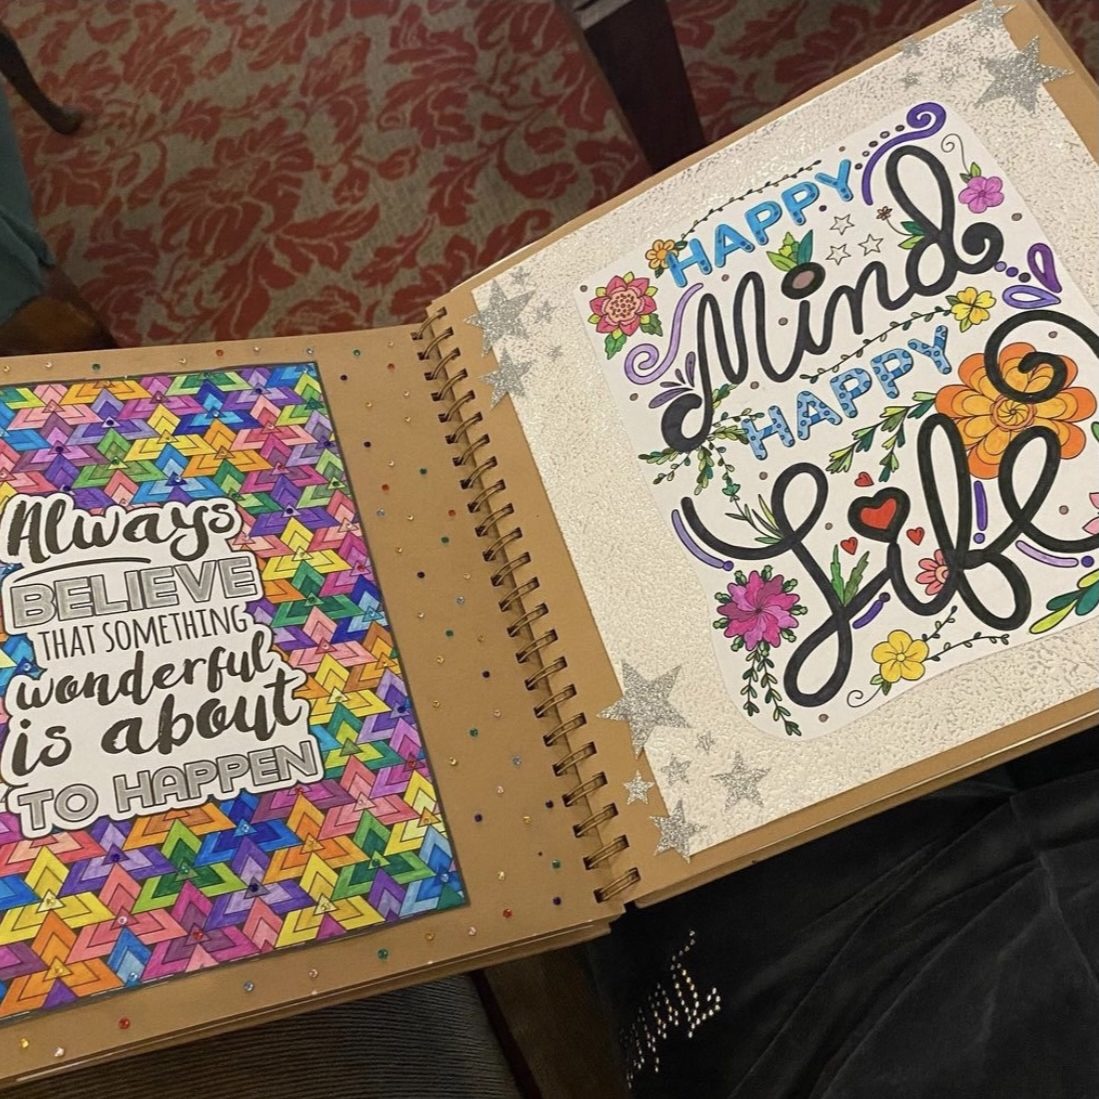 Always
BELIEVE
THAT SOMETHING
wonderful
is about
TO HAPPEN
HAPPY
Mind
HAPPY
Life